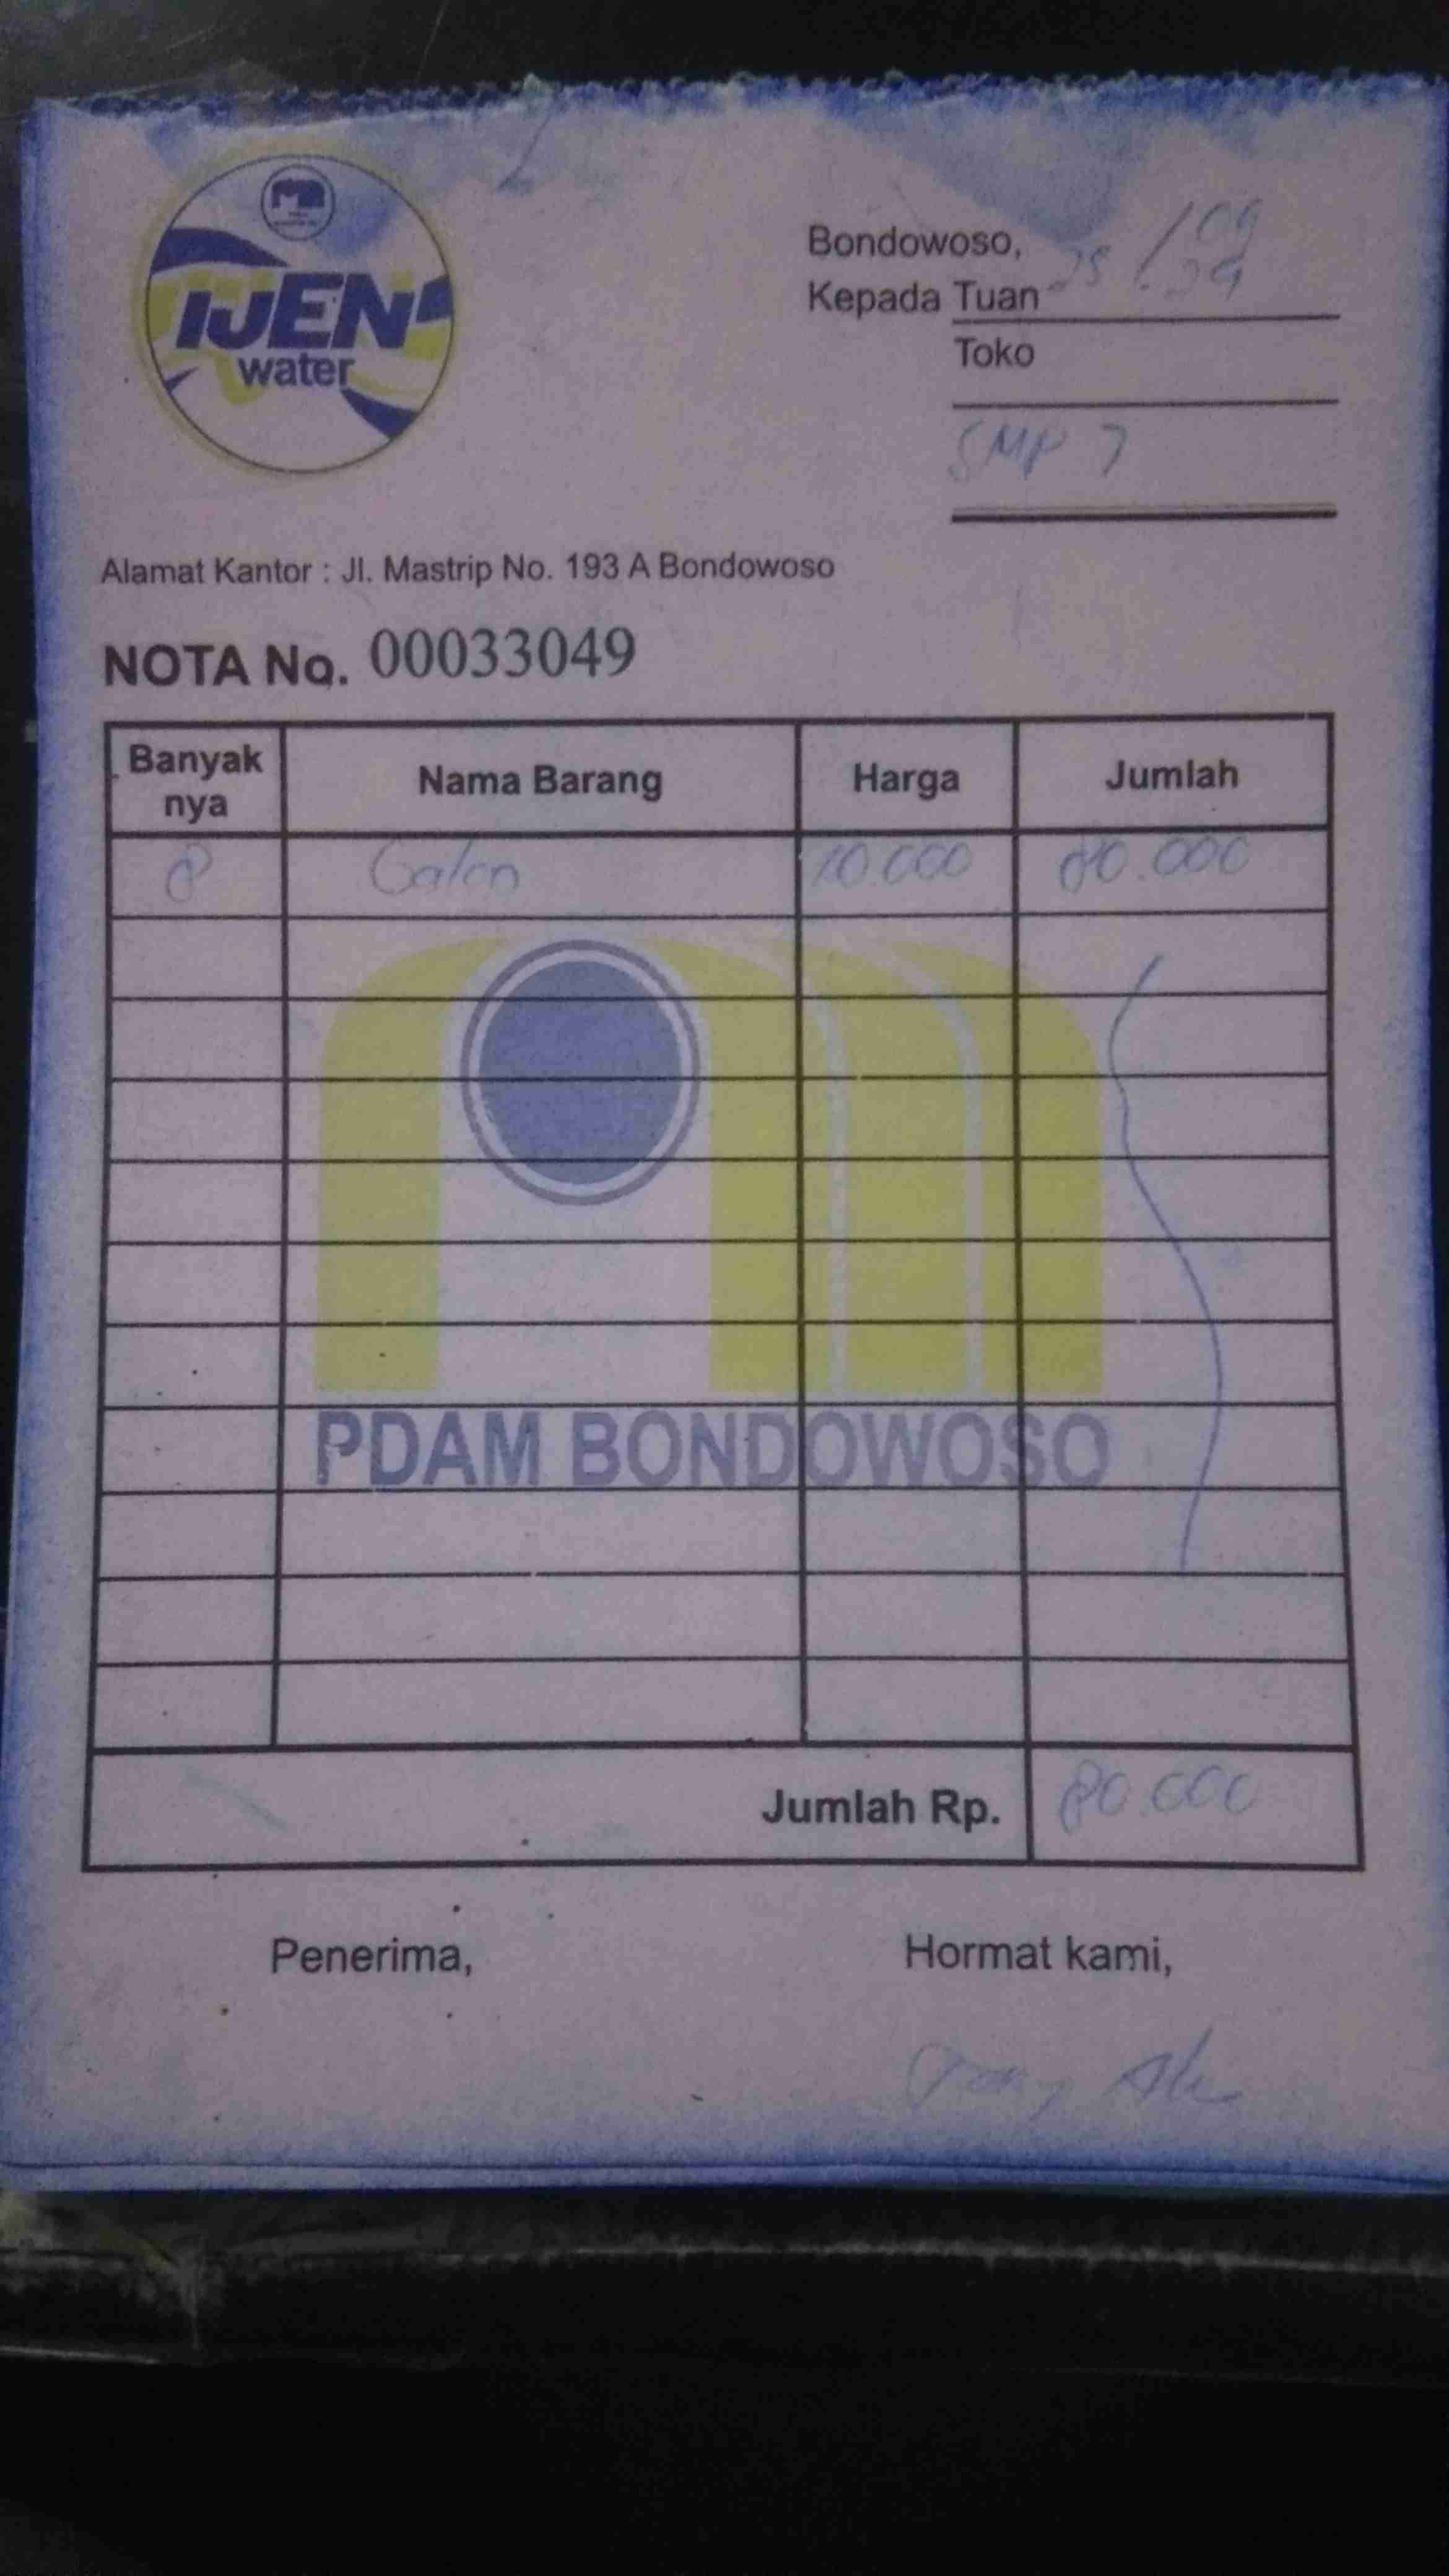 IJEN
water
Bondowoso, 25 / 09
Kepada Tuan
Toko
SMP 7
Alamat Kantor : Jl. Mastrip No. 193 A Bondowoso
NOTA No. 00033049
Banyak nya Nama Barang Harga Jumlah
8 Galon 10.000 80.000
PDAM BONDOWOSO
Jumlah Rp. 80.000
Penerima, Hormat kami,